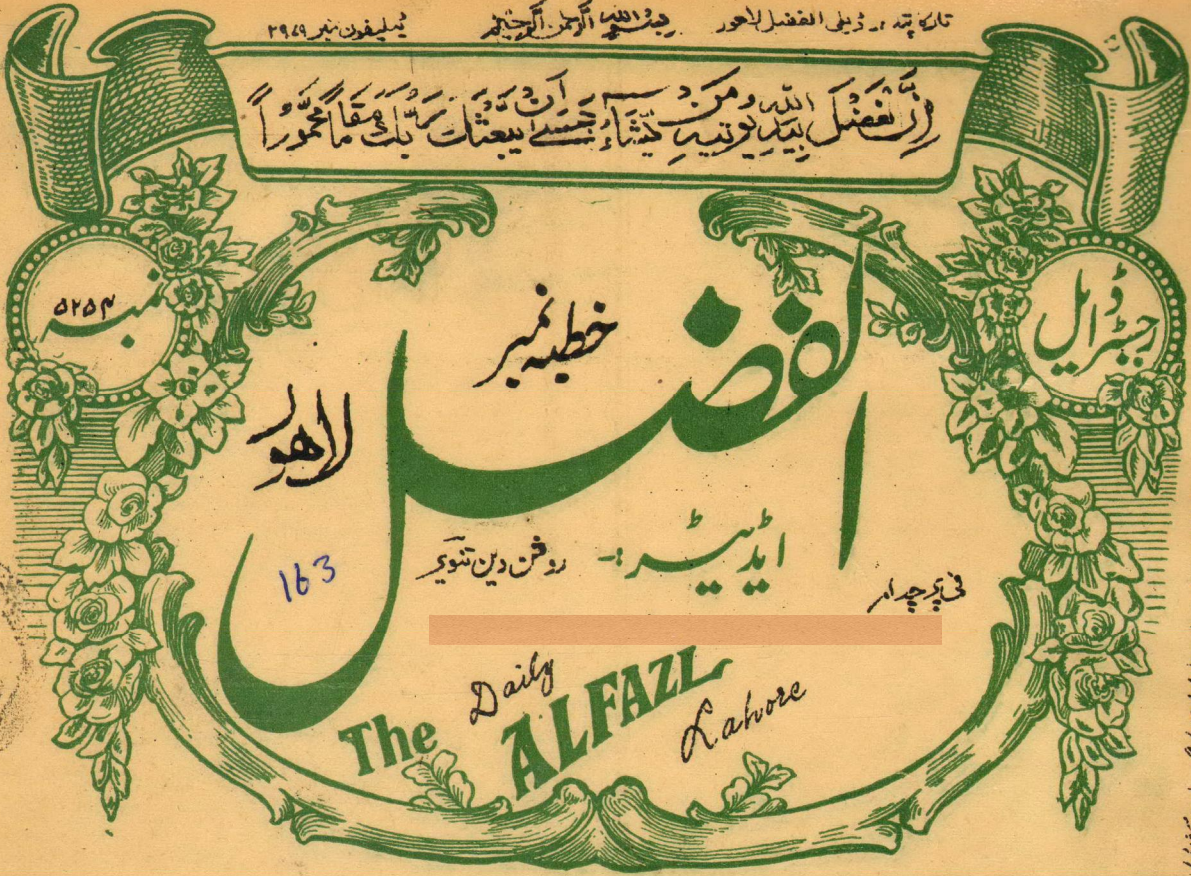 تار کا پتہ :۔ ڈیلی الفضل لاہور
بسم اللہ الرحمن الرحیم
ٹیلیفون نمبر ۲۹۷۹
اِنَّ الْفَضْلَ بِیَدِ اللّٰہِ یُؤْتِیْہِ مَنْ یَّشَآءُ عَسٰے اَنْ یَّبْعَثَکَ رَبُّکَ مَقَامًا مَّحْمُوْدًا
رجسٹرڈ ایل
نمبر ۵۲۵۴
الفضل
خطبہ نمبر
لاہور
ایڈیٹر :-
روشن دین تنویر
فی پرچہ ۱ر
163
The Daily ALFAZL Lahore